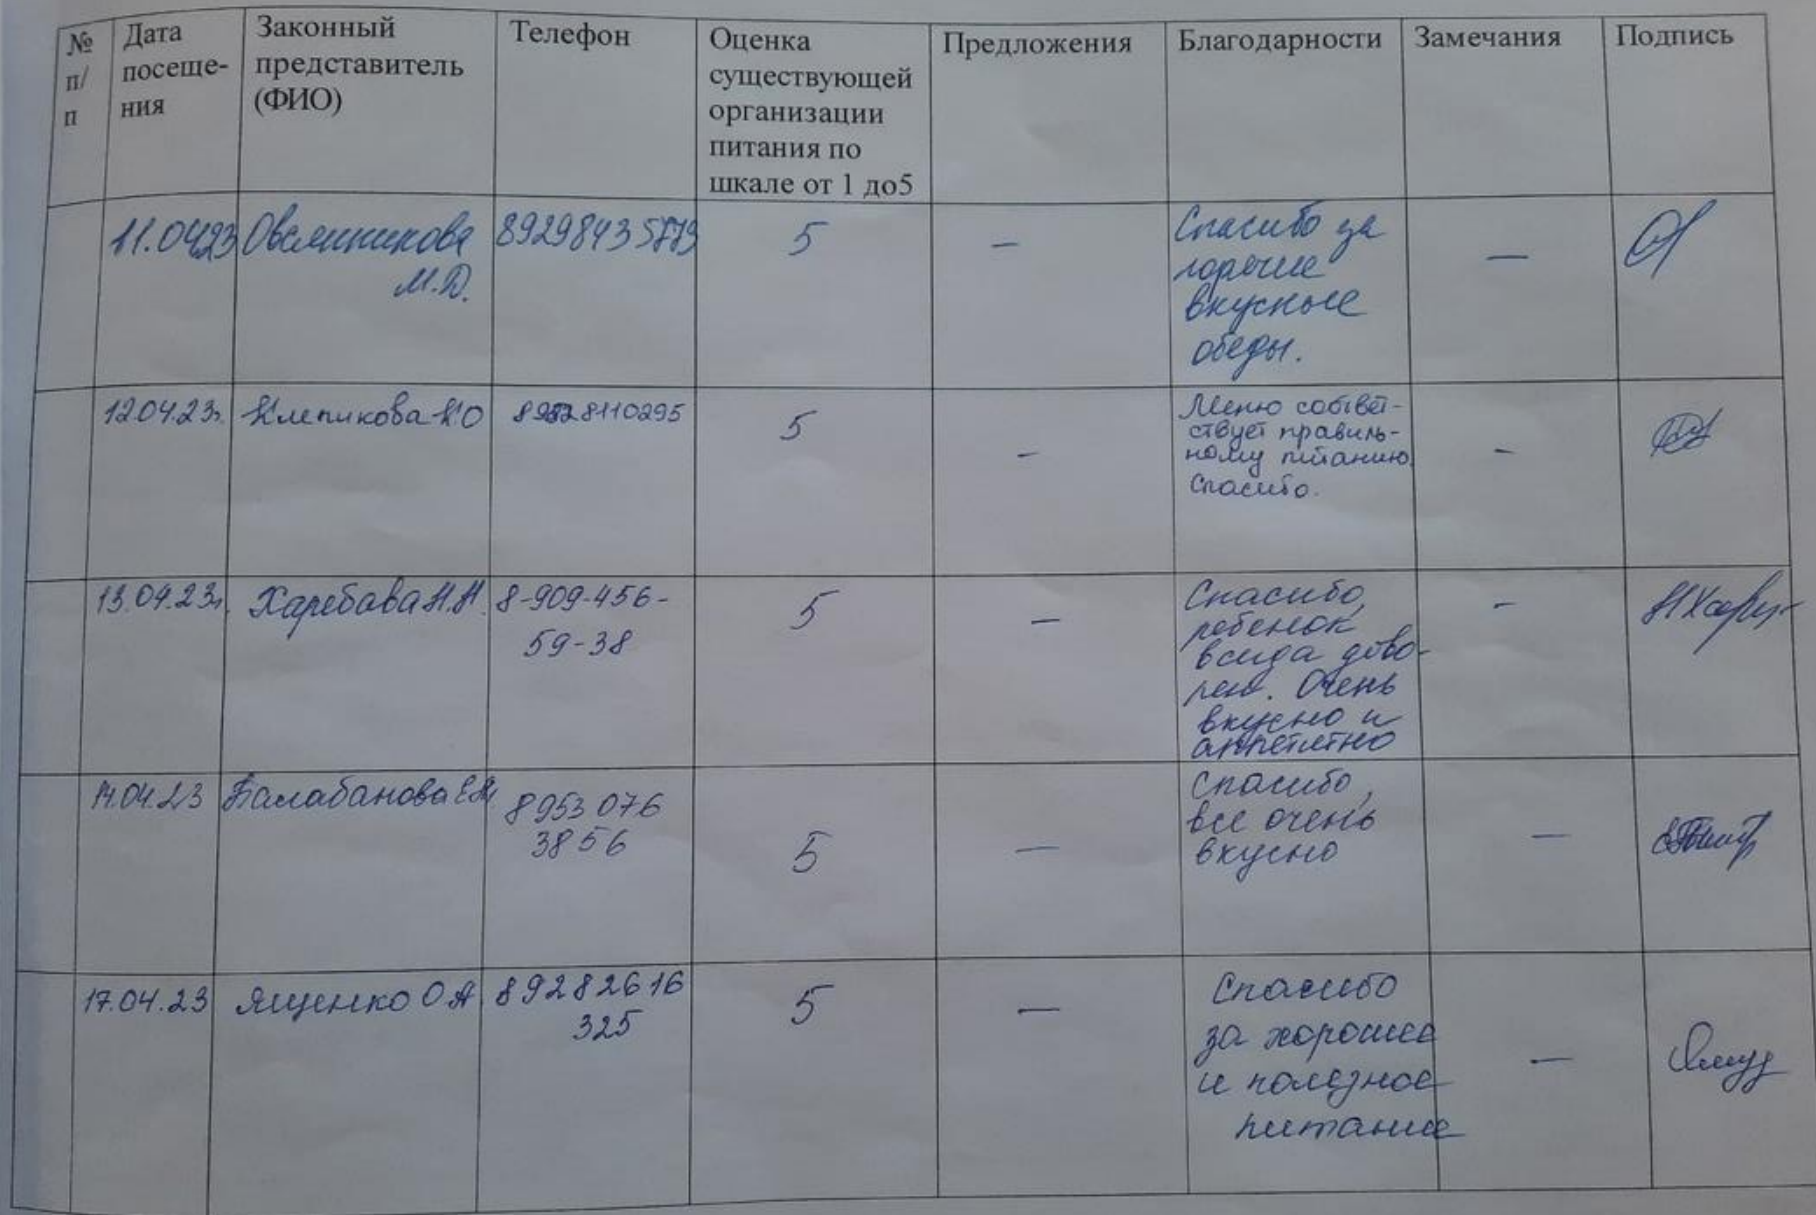 № п/п
Дата посеще-ния
Законный представитель (ФИО)
Телефон
Оценка существующей организации питания по шкале от 1 до5
Предложения
Благодарности
Замечания
Подпись
11.04.23
Овсянникова
М.Д.
5
—
Спасибо за
горячие
вкусные
обеды.
—
12.04.23г.
Клепикова К.О
5
—
Меню соответ-
ствует правиль-
ному питанию.
Спасибо.
—
13.04.23г.
Харебава Н.Н.
8-909-456-
59-38
5
—
Спасибо,
ребенок
всегда дово-
лен. Очень
вкусно и
аппетитно
—
14.04.23
Балабанова Е.М.
8953 076
3856
5
—
Спасибо,
все очень
вкусно
—
17.04.23
Ященко О А
892826 16
325
5
—
Спасибо
за хорошее
и полезное
питание
—